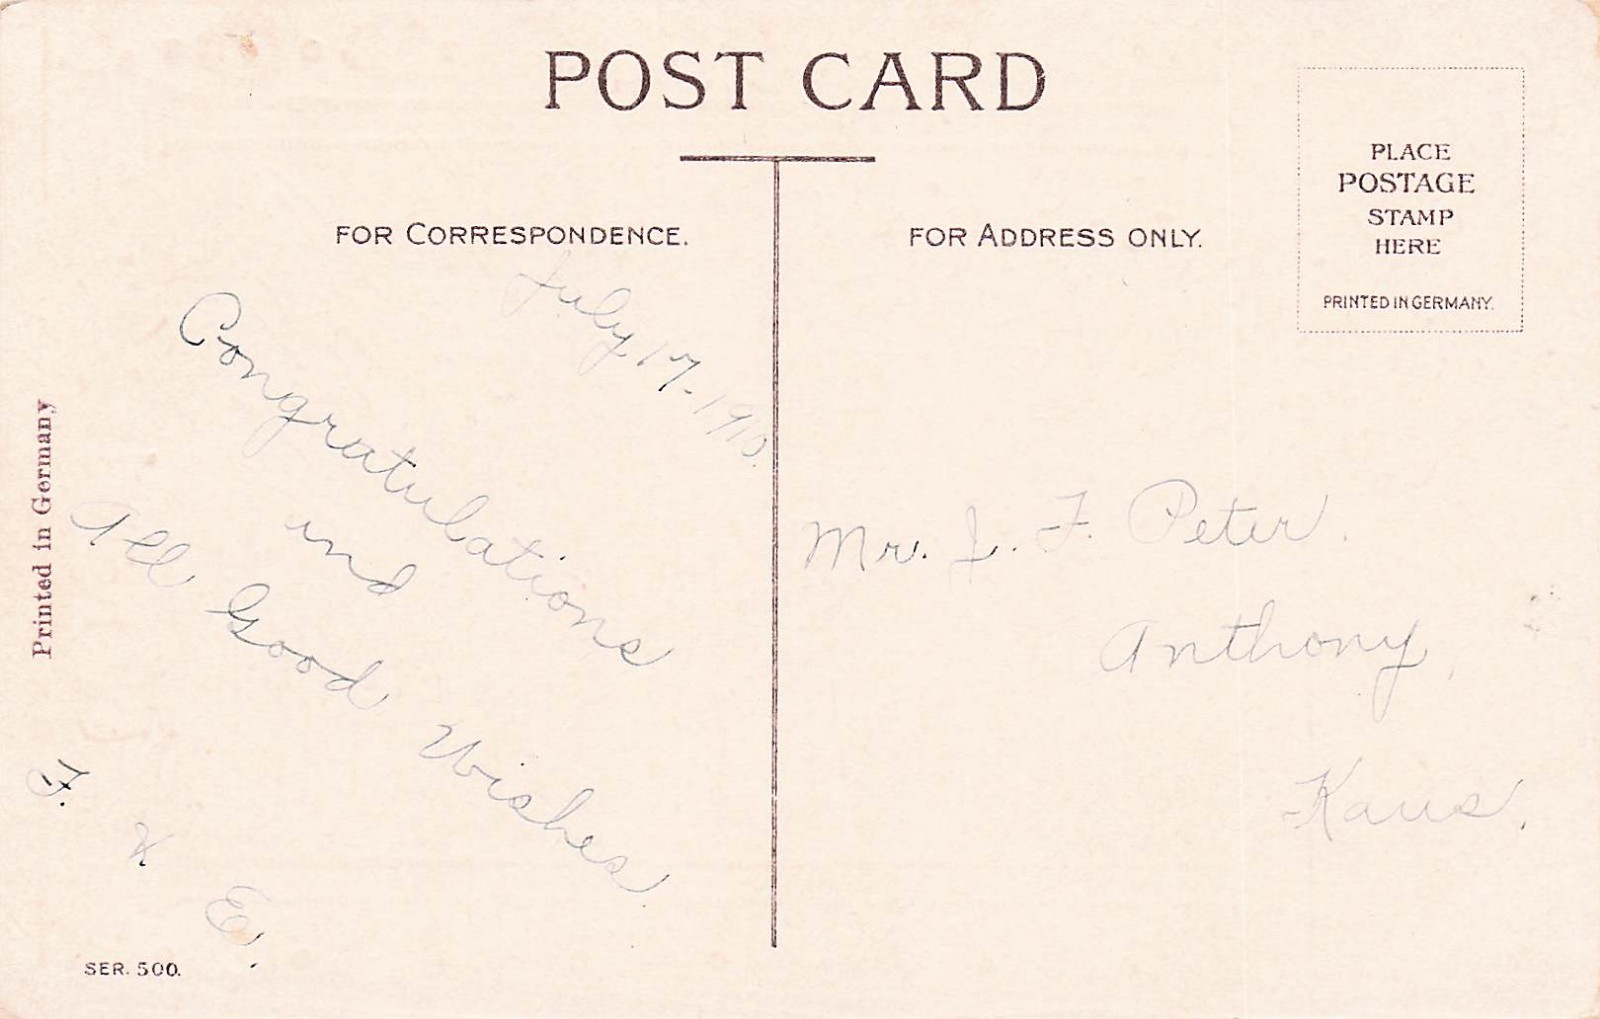 POST CARD
FOR CORRESPONDENCE.
July 17-1910.
Congratulations
and
All Good Wishes
F.
&
E.
Printed in Germany
SER. 500.
FOR ADDRESS ONLY.
PLACE
POSTAGE
STAMP
HERE
PRINTED IN GERMANY.
Mr. J. F. Peter.
Anthony,
Kans.